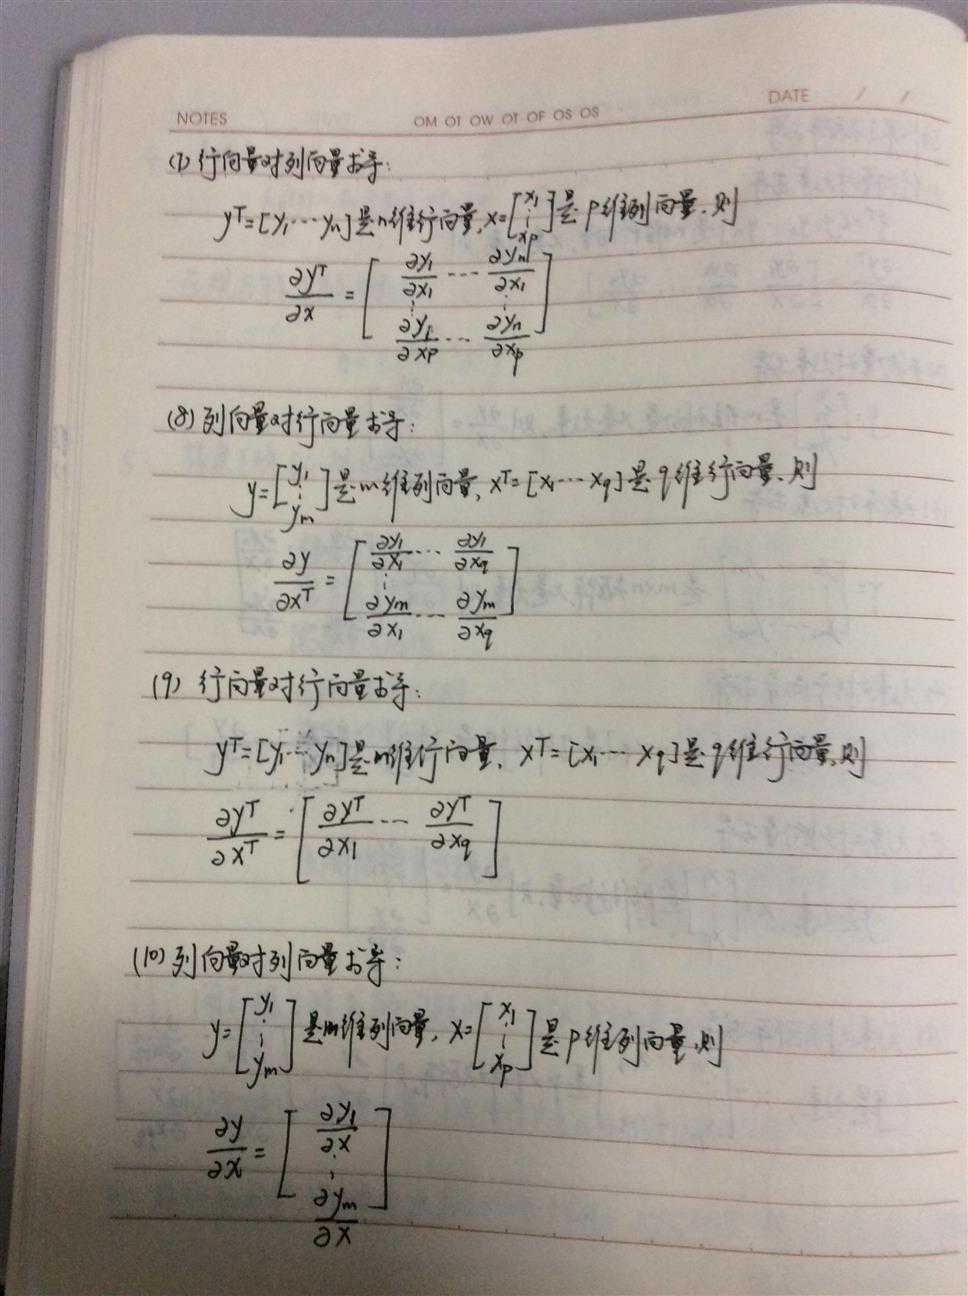 NOTES OM OT OW OT OF OS OS DATE / /
(7) 行向量对列向量求导:
yᵀ=[y₁…yₙ]是n维行向量,x=[x₁ ⋮ xₚ]是p维列向量,则
∂yᵀ/∂x = [∂y₁/∂x₁ … ∂yₙ/∂x₁
⋮ ⋮
∂y₁/∂xₚ … ∂yₙ/∂xₚ]
(8) 列向量对行向量求导:
y=[y₁ ⋮ yₘ]是m维列向量,xᵀ=[x₁…x_q]是q维行向量,则
∂y/∂xᵀ = [∂y₁/∂x₁ … ∂y₁/∂x_q
⋮
∂yₘ/∂x₁ … ∂yₘ/∂x_q]
(9) 行向量对行向量求导:
yᵀ=[y₁…yₙ]是n维行向量,xᵀ=[x₁…x_q]是q维行向量,则
∂yᵀ/∂xᵀ = [∂yᵀ/∂x₁ … ∂yᵀ/∂x_q]
(10) 列向量对列向量求导:
y=[y₁ ⋮ yₘ]是m维列向量,x=[x₁ ⋮ xₚ]是p维列向量,则
∂y/∂x = [∂y₁/∂x
⋮
∂yₘ/∂x]